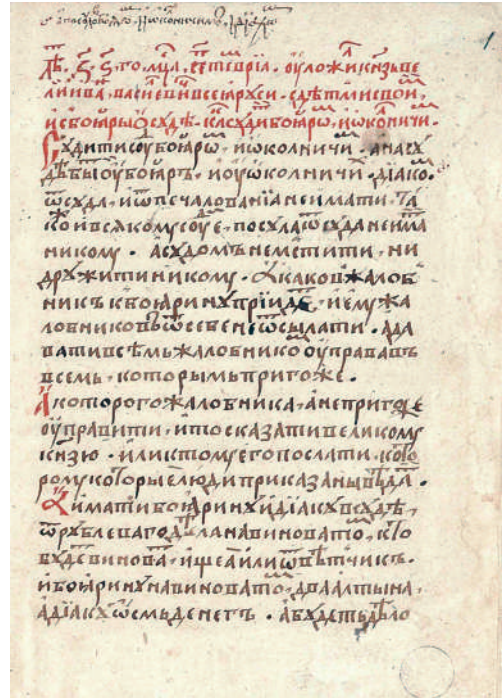 лѣ, ҂ѕ҃. ѕ҃. го, мцⷭ҇а, сеⷫ҇тевріа. оуложи кн҃ѕь ве
ликїи ива, васиⷧевиⷱ всеѧ рꙋси. с дѣтми свои,
и с боѧры ѡ сꙋдѣ. каⷦ сꙋдиⷮ боѧрѡⷨ, и ѡколничиⷨ.
Сꙋдити сꙋⷣ боѧрѡⷨ, и ѡколничиⷨ. а на сꙋ
дѣ быⷮ оу боѧръ, и оу ѡколничиⷯ дїакоⷨ.
ѿ сꙋда, и ѿ печалованїа не имати. та
кои всѧкомꙋ соуⷣе, посꙋла ѿ сꙋда не имаⷮ
никомꙋ. а сꙋдомъ не мстити, ни
дрꙋжити никомꙋ. а каковⷤ жалоб
никъ к боѧринꙋ прїидеⷮ, и емꙋ жа
лобниковъ ѿ себе не ѿсылати. а да
вати всѣмъ жалобникоⷨ оуправа въ
всемь, которымъ пригоже.
А которого жалобника, а не пригоже
оуправити, и то сказати великомꙋ
кн҃зю. или к томꙋ его послати, кото
ромꙋ которые люди приказаны вѣдаⷮ.
А имати боѧринꙋ и дїакꙋ в сꙋдѣ,
ѿ рꙋблева го дѣла на виноватоⷨ. кто
бꙋдеⷮ виноваⷮ, ищеа или ѿвѣтчикъ.
и боѧринꙋ на виноватоⷨ, два алтына,
а дїакꙋ ѡсмь денегъ. а бꙋдетъ дѣло